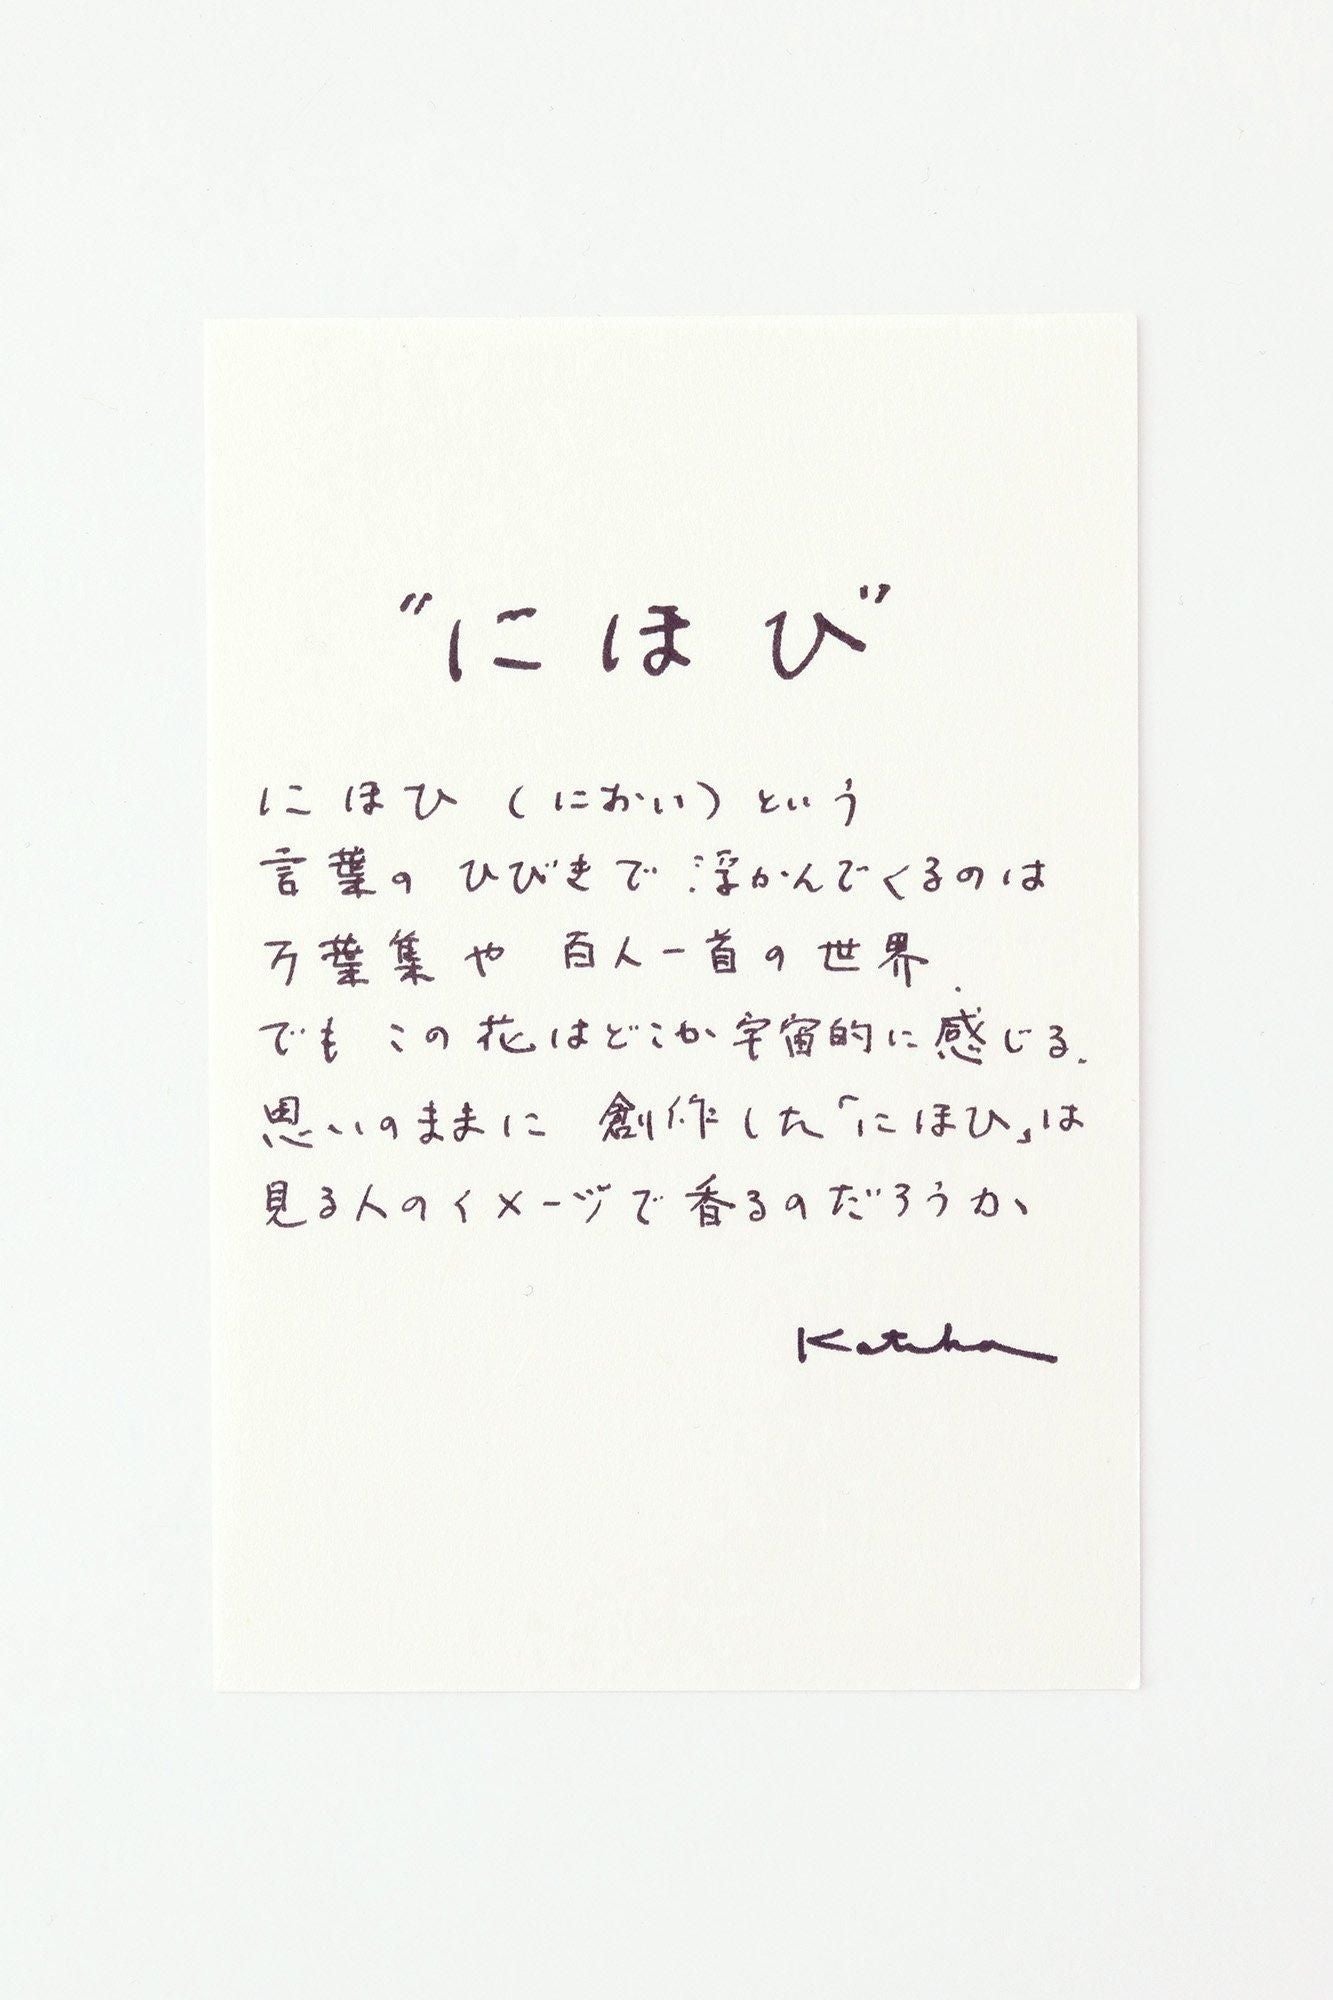 "にほひ"
にほひ（におい）という
言葉の ひびきで 浮かんでくるのは
万葉集や 百人一首の世界.
でも この花はどこか宇宙的に感じる.
思いのままに 創作した「にほひ」は
見る人のイメージで香るのだろうか